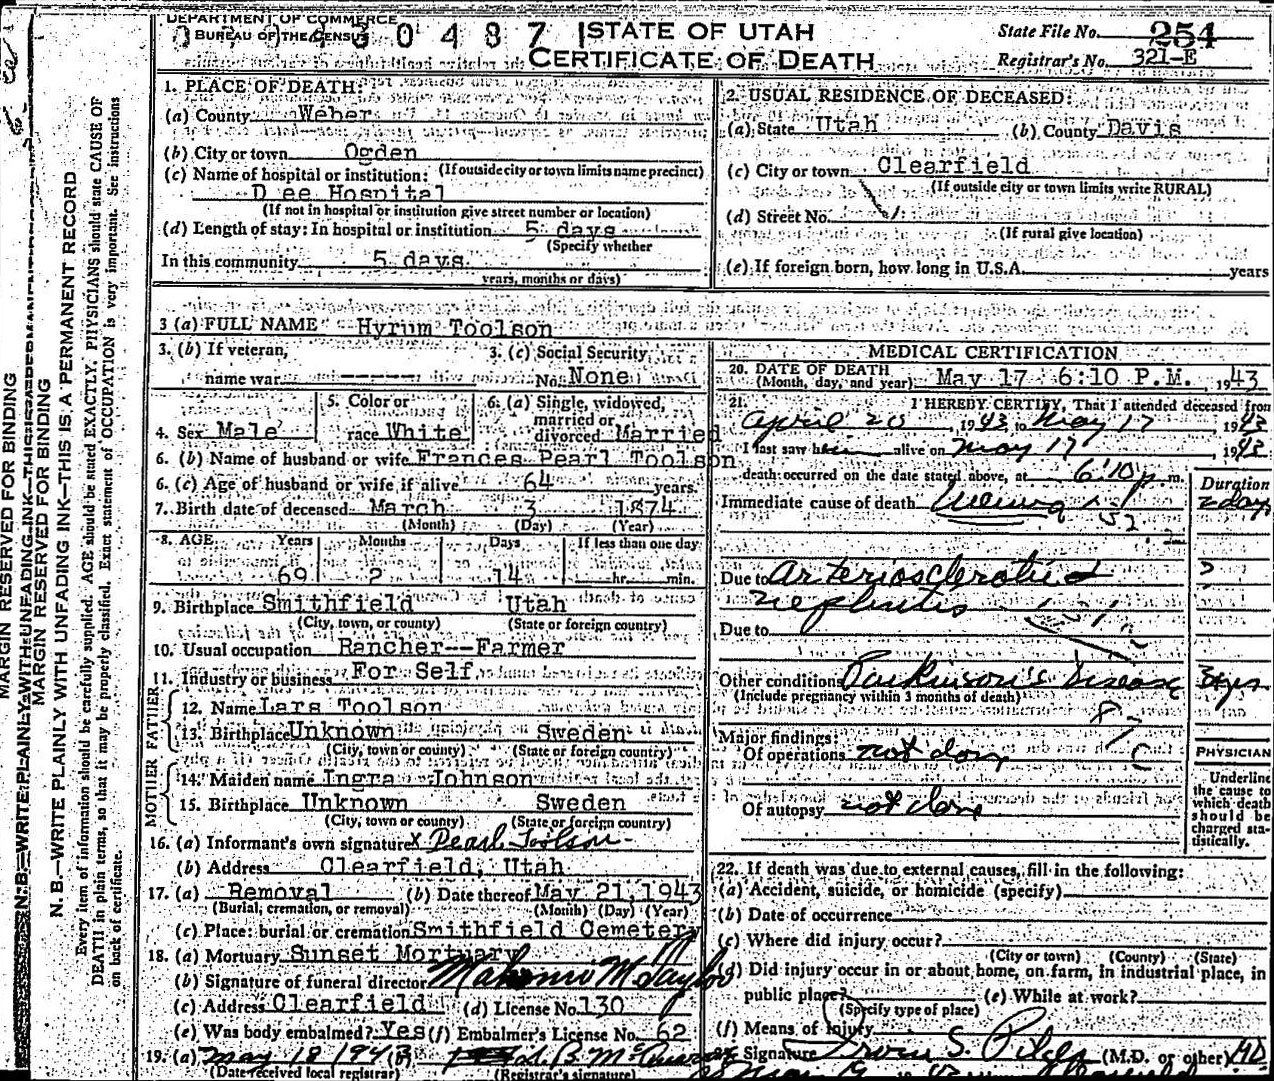 DEPARTMENT OF COMMERCE
BUREAU OF THE CENSUS
0 4 8 7
STATE OF UTAH
CERTIFICATE OF DEATH
State File No. 254
Registrar's No. 321-E
MARGIN RESERVED FOR BINDING
N. B.—WRITE PLAINLY WITH UNFADING INK—THIS IS A PERMANENT RECORD
MARGIN RESERVED FOR BINDING
N. B.—WRITE PLAINLY WITH UNFADING INK—THIS IS A PERMANENT RECORD
Every item of information should be carefully supplied. AGE should be stated EXACTLY. PHYSICIANS should state CAUSE OF
DEATH in plain terms, so that it may be properly classified. Exact statement of OCCUPATION is very important. See instructions
on back of certificate.
1. PLACE OF DEATH:
(a) County Weber
(b) City or town Ogden
(c) Name of hospital or institution: (If outside city or town limits name precinct)
Dee Hospital
(If not in hospital or institution give street number or location)
(d) Length of stay: In hospital or institution 5 days
(Specify whether
In this community 5 days
years, months or days)
2. USUAL RESIDENCE OF DECEASED:
(a) State Utah (b) County Davis
(c) City or town Clearfield
(If outside city or town limits write RURAL)
(d) Street No.
(If rural give location)
(e) If foreign born, how long in U.S.A. years
3 (a) FULL NAME Hyrum Toolson
3. (b) If veteran,
name war -----
3. (c) Social Security
No. None
4. Sex Male
5. Color or
race White
6. (a) Single, widowed,
married or
divorced Married
6. (b) Name of husband or wife Frances Pearl Toolson
6. (c) Age of husband or wife if alive 64 years.
7. Birth date of deceased March 3 1874
(Month) (Day) (Year)
8. AGE Years Months Days If less than one day
69 2 14 hr. min.
9. Birthplace Smithfield Utah
(City, town, or county) (State or foreign country)
10. Usual occupation Rancher--Farmer
11. Industry or business For Self
FATHER
12. Name Lars Toolson
13. Birthplace Unknown Sweden
(City, town or county) (State or foreign country)
MOTHER
14. Maiden name Ingra Johnson
15. Birthplace Unknown Sweden
(City, town or county) (State or foreign country)
16. (a) Informant's own signature X Pearl Toolson
(b) Address Clearfield, Utah
17. (a) Removal (b) Date thereof May 21, 1943
(Burial, cremation, or removal) (Month) (Day) (Year)
(c) Place: burial or cremation Smithfield Cemetery
18. (a) Mortuary Sunset Mortuary
(b) Signature of funeral director
(c) Address Clearfield (d) License No. 130
(e) Was body embalmed? Yes (f) Embalmer's License No. 62
19. (a) May 18 1943
(Date received local registrar) (Registrar's signature)
MEDICAL CERTIFICATION
20. DATE OF DEATH
(Month, day, and year) May 17 6:10 P.M. 1943
21. I HEREBY CERTIFY, That I attended deceased from
April 20, 1943 to May 17 1943
I last saw him alive on May 17 1943
death occurred on the date stated above, at 6:10 p m.
Duration
Immediate cause of death Uremia 2 days
Due to Arteriosclerotic ?
Nephritis ?
Due to
Other conditions Parkinson's Disease 3 yrs
(Include pregnancy within 3 months of death)
Major findings:
Of operations not done
Of autopsy not done
PHYSICIAN
Underline
the cause to
which death
should be
charged sta-
tistically.
22. If death was due to external causes, fill in the following:
(a) Accident, suicide, or homicide (specify)
(b) Date of occurrence
(c) Where did injury occur?
(City or town) (County) (State)
(d) Did injury occur in or about home, on farm, in industrial place, in
public place? (e) While at work?
(Specify type of place)
(f) Means of Injury
Signature (M.D. or other) MD